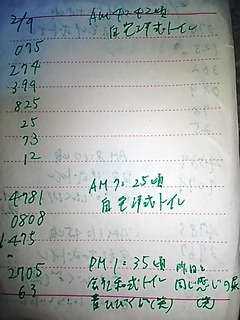 2/9 AM 4:42頃
自宅洋式トイレ
075
274
394
825
25
73
12
AM 7:25頃
4781 自宅洋式トイレ
0808
1475
PM 1:35頃 昨日と
2705 会社和式トイレ 同じ悪いうの尿
63 (笑)